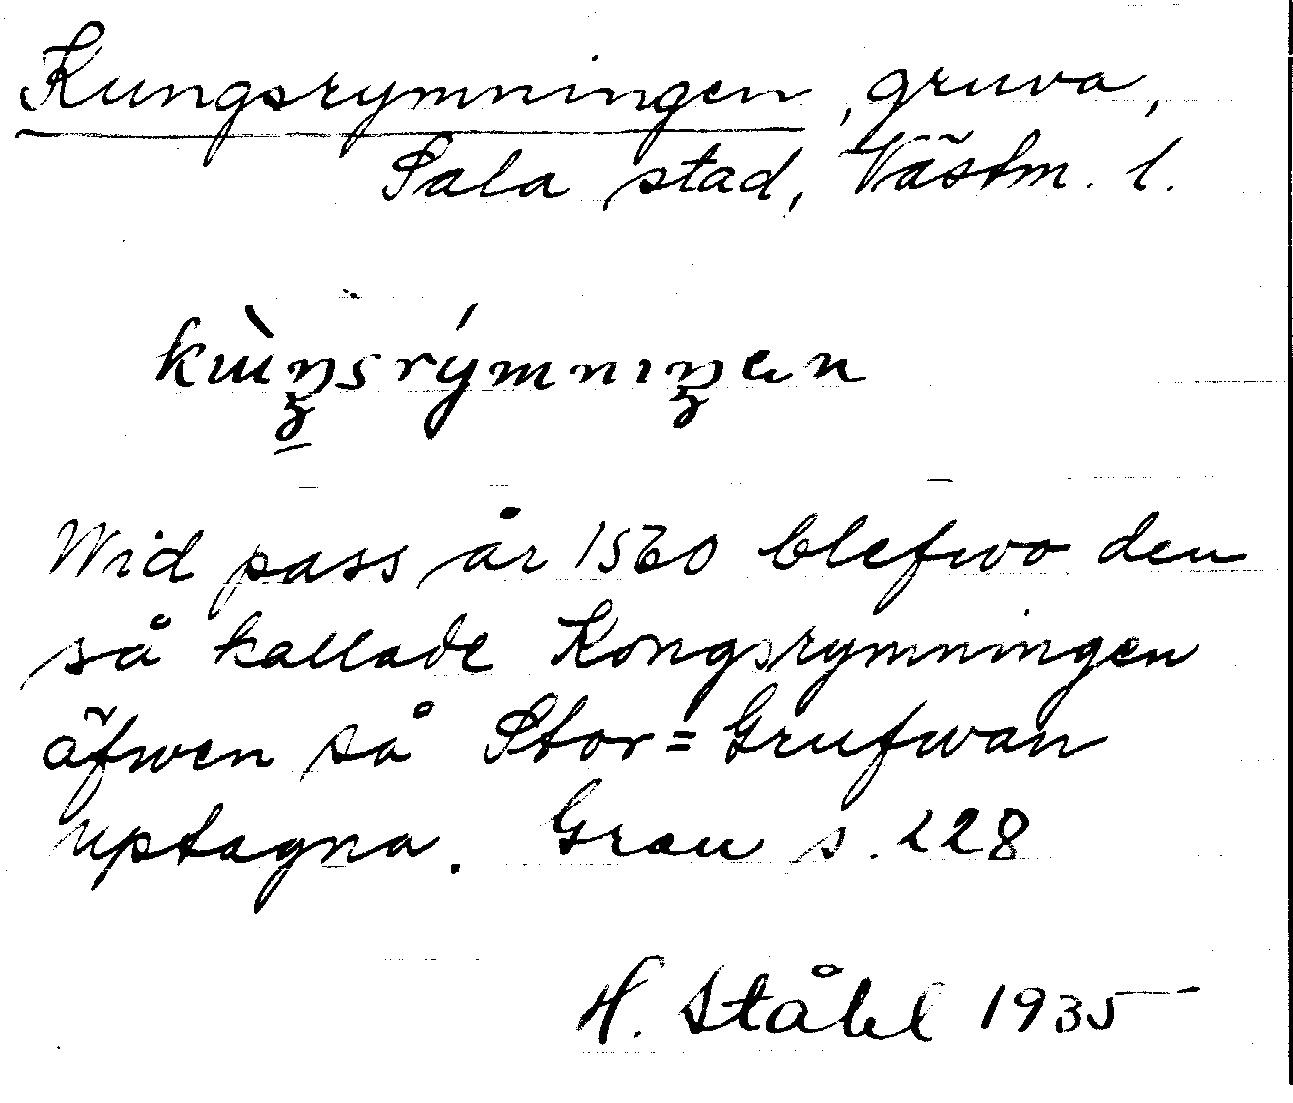 Kungsrymningen, gruva,
Sala stad, Västm. l.
kɯ̀ŋsrýmnıŋen
Wid pass år 1560 blefwo den
så kallade Kongsrymningen
äfwen så Stor=Grufwan
uptagna. Grau s. 228
H. Ståhl 1935